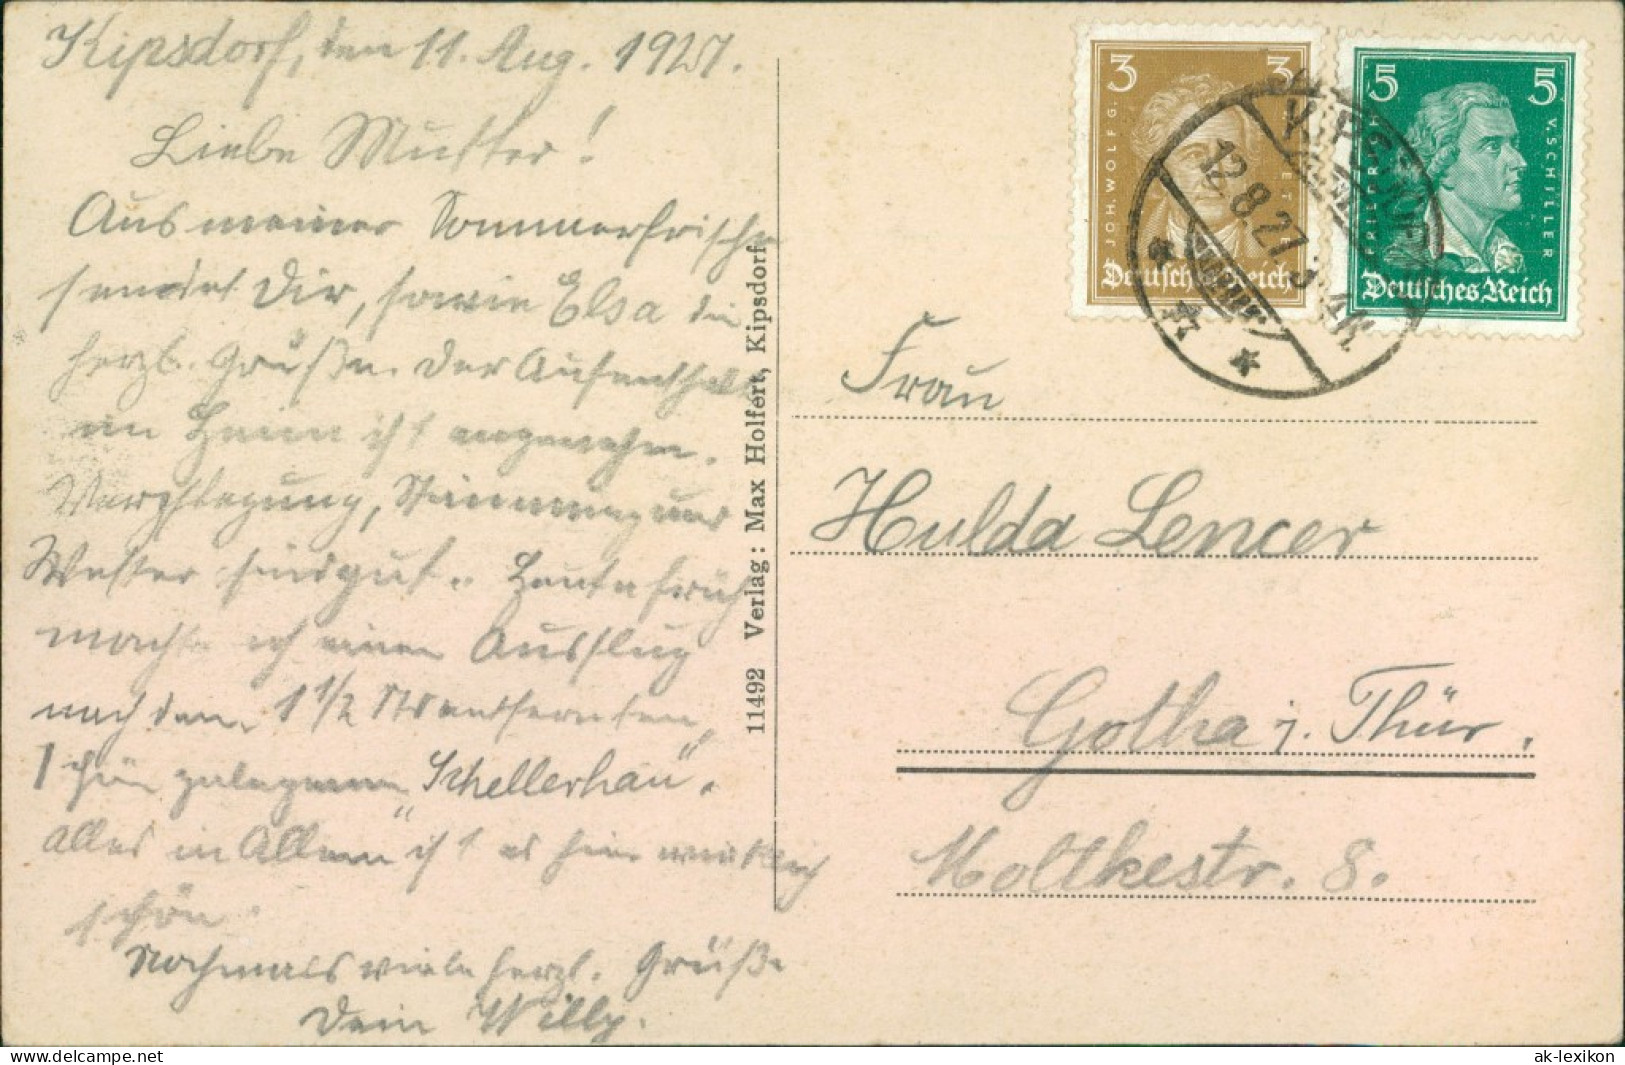 Kipsdorf, den 11. Aug. 1927.
Liebe Mutter!
Aus meiner Sommerfrische
sendet Dir, sowie Elsa die
herzl. Grüße. Der Aufenthalt
im Heim ist angenehm.
Verpflegung, Stimmung und
Wetter sind gut. Heute früh
machte ich einen Ausflug
nach dem 1 1/2 Std entfernten,
schön gelegenen „Schellerhau".
Alles in Allem ist es hier wirklich
schön.
Nochmals viele herzl. Grüße
Dein Willy.
11492 Verlag: Max Holfert, Kipsdorf
3 3
JOH. WOLFG.
Deutsches Reich
5 5
FRIEDRICH V. SCHILLER
Deutsches Reich
KIPSDORF
12.8.27
Frau
Hulda Lencer
Gotha i. Thür.
Moltkestr. 8.
www.delcampe.net
ak-lexikon